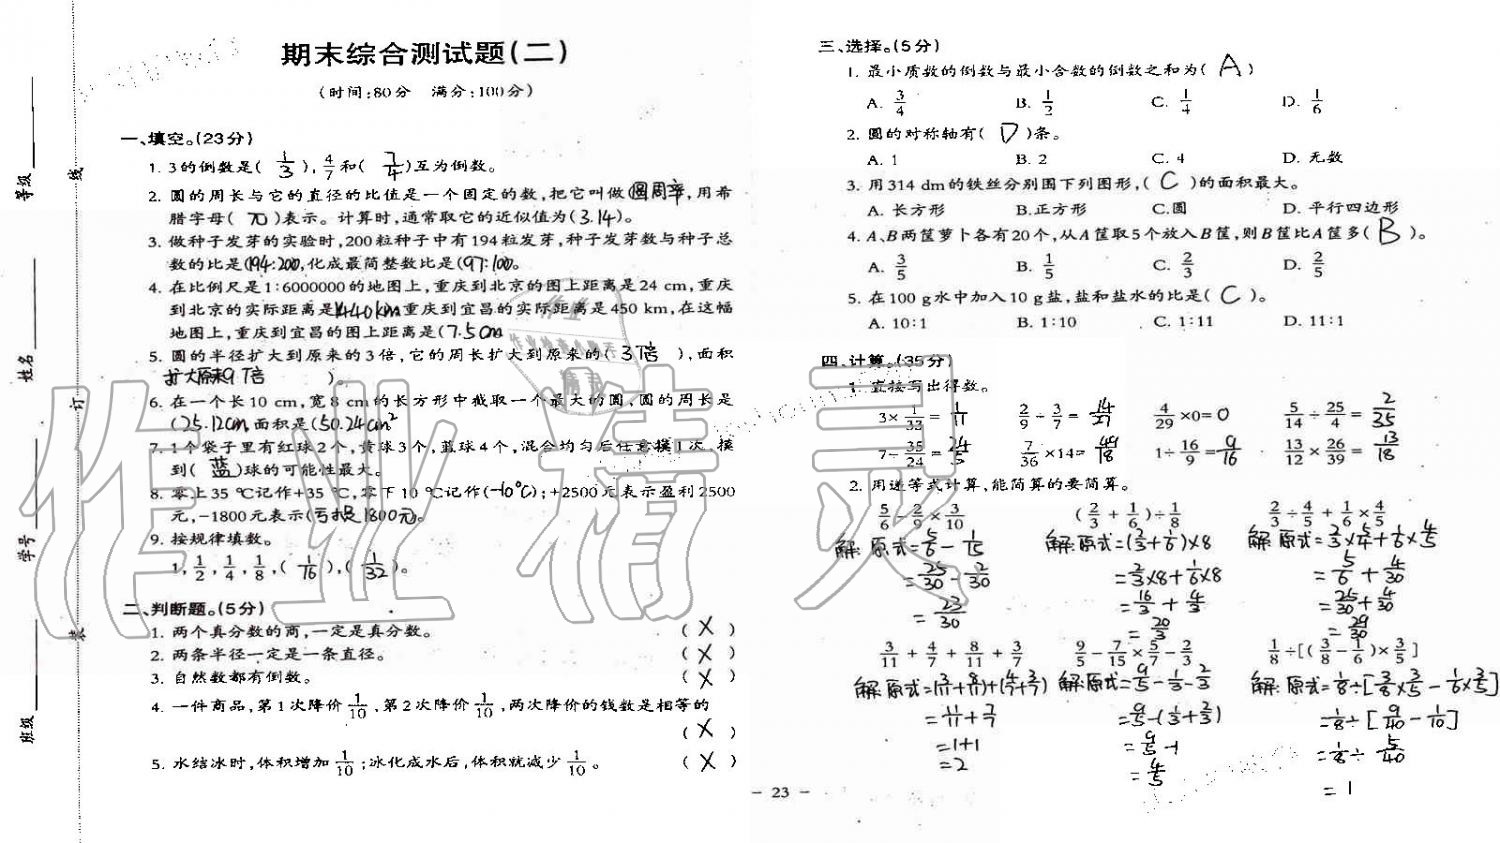 期末综合测试题(二)
(时间:80分 满分:100分)
一、填空。(23分)
1. 3的倒数是( 1/3 ),4/7和( 7/4 )互为倒数。
2. 圆的周长与它的直径的比值是一个固定的数,把它叫做(圆周率,用希
腊字母( π )表示。计算时,通常取它的近似值为(3.14)。
3. 做种子发芽的实验时,200粒种子中有194粒发芽,种子发芽数与种子总
数的比是(194:200,化成最简整数比是(97:100。
4. 在比例尺是1:6000000的地图上,重庆到北京的图上距离是24 cm,重庆
到北京的实际距离是1440km重庆到宜昌的实际距离是450 km,在这幅
地图上,重庆到宜昌的图上距离是(7.5cm
5. 圆的半径扩大到原来的3倍,它的周长扩大到原来的( 3倍 ),面积
扩大原来9倍 )。
6. 在一个长10 cm,宽8 cm的长方形中截取一个最大的圆,圆的周长是
(25.12cm,面积是(50.24cm²
7. 1个袋子里有红球2个,黄球3个,蓝球4个,混合均匀后任意摸1次,摸
到( 蓝 )球的可能性最大。
8. 零上35℃记作+35℃,零下10℃记作(-10℃);+2500元表示盈利2500
元,-1800元表示(亏损1800元。
9. 按规律填数。
1,1/2,1/4,1/8,( 1/16 ),( 1/32 )。
二、判断题。(5分)
1. 两个真分数的商,一定是真分数。 ( X )
2. 两条半径一定是一条直径。 ( X )
3. 自然数都有倒数。 ( X )
4. 一件商品,第1次降价1/10,第2次降价1/10,两次降价的钱数是相等的
( X )
5. 水结冰时,体积增加1/10;冰化成水后,体积就减少1/10。 ( X )
等级
姓名
学号
班级
线
订
装
三、选择。(5分)
1. 最小质数的倒数与最小合数的倒数之和为( A )
A. 3/4 B. 1/2 C. 1/4 D. 1/6
2. 圆的对称轴有( D )条。
A. 1 B. 2 C. 4 D. 无数
3. 用314 dm的铁丝分别围下列图形,( C )的面积最大。
A. 长方形 B.正方形 C.圆 D. 平行四边形
4. A、B两筐萝卜各有20个,从A筐取5个放入B筐,则B筐比A筐多( B )。
A. 3/5 B. 1/5 C. 2/3 D. 2/5
5. 在100 g水中加入10 g盐,盐和盐水的比是( C )。
A. 10:1 B. 1:10 C. 1:11 D. 11:1
四、计算。(35分)
1. 直接写出得数。
3×1/33= 1/11 2/9÷3/7= 14/27 4/29×0= 0 5/14÷25/4= 2/35
7÷35/24= 24/5 7/36×14= 49/18 1÷16/9= 9/16 13/12×26/39= 13/18
2. 用递等式计算,能简算的要简算。
5/6-2/9×3/10 (2/3+1/6)÷1/8 2/3÷4/5+1/6×4/5
解:原式=5/6-1/15 解:原式=(2/3+1/6)×8 解:原式=2/3×5/4+1/6×4/5
=25/30-2/30 =2/3×8+1/6×8 =5/6+4/30
=23/30 =16/3+4/3 =25/30+4/30
=20/3 =29/30
3/11+4/7+8/11+3/7 9/5-7/15×5/7-2/3 1/8÷[(3/8-1/6)×3/5]
解:原式=(3/11+8/11)+(4/7+3/7) 解:原式=9/5-1/3-2/3 解:原式=1/8÷[3/8×3/5-1/6×3/5]
=11/11+7/7 =9/5-(1/3+2/3) =1/8÷[9/40-1/10]
=1+1 =9/5-1 =1/8÷5/40
=2 =4/5 =1
- 23 -
作业精灵